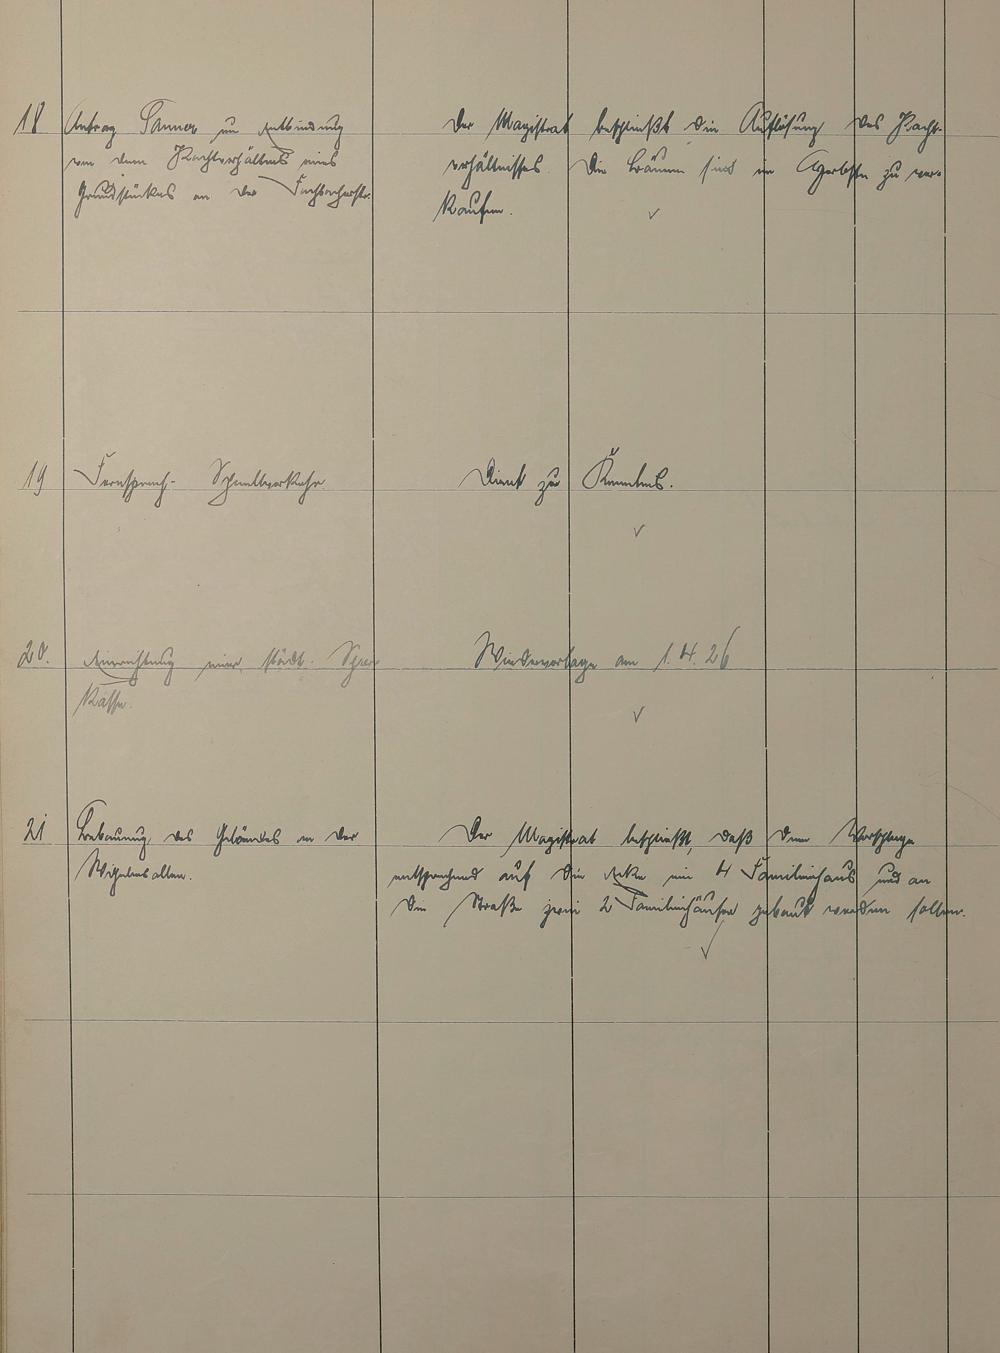 18 Antrag Tanner um Entbindung
von dem Pachtverhältnis eines
Grundstückes an der
Der Magistrat beschließt die Auflösung des Pacht-
verhältnisses. Die Bäume sind im Herbste zu ver-
kaufen.
19 Fernsprech- Schnellverkehr.
Dient zu Kenntnis.
20. Einrichtung einer städt. Spar
Kasse.
Wiedervorlage am 1.4.26
21 Bebauung des Geländes an der
Wilhelmsallee.
Der Magistrat beschließt, daß dem Vorschlage
entsprechend auf die Ecke ein 4 Familienhaus und an
die Straße zwei 2 Familienhäuser gebaut werden sollen.